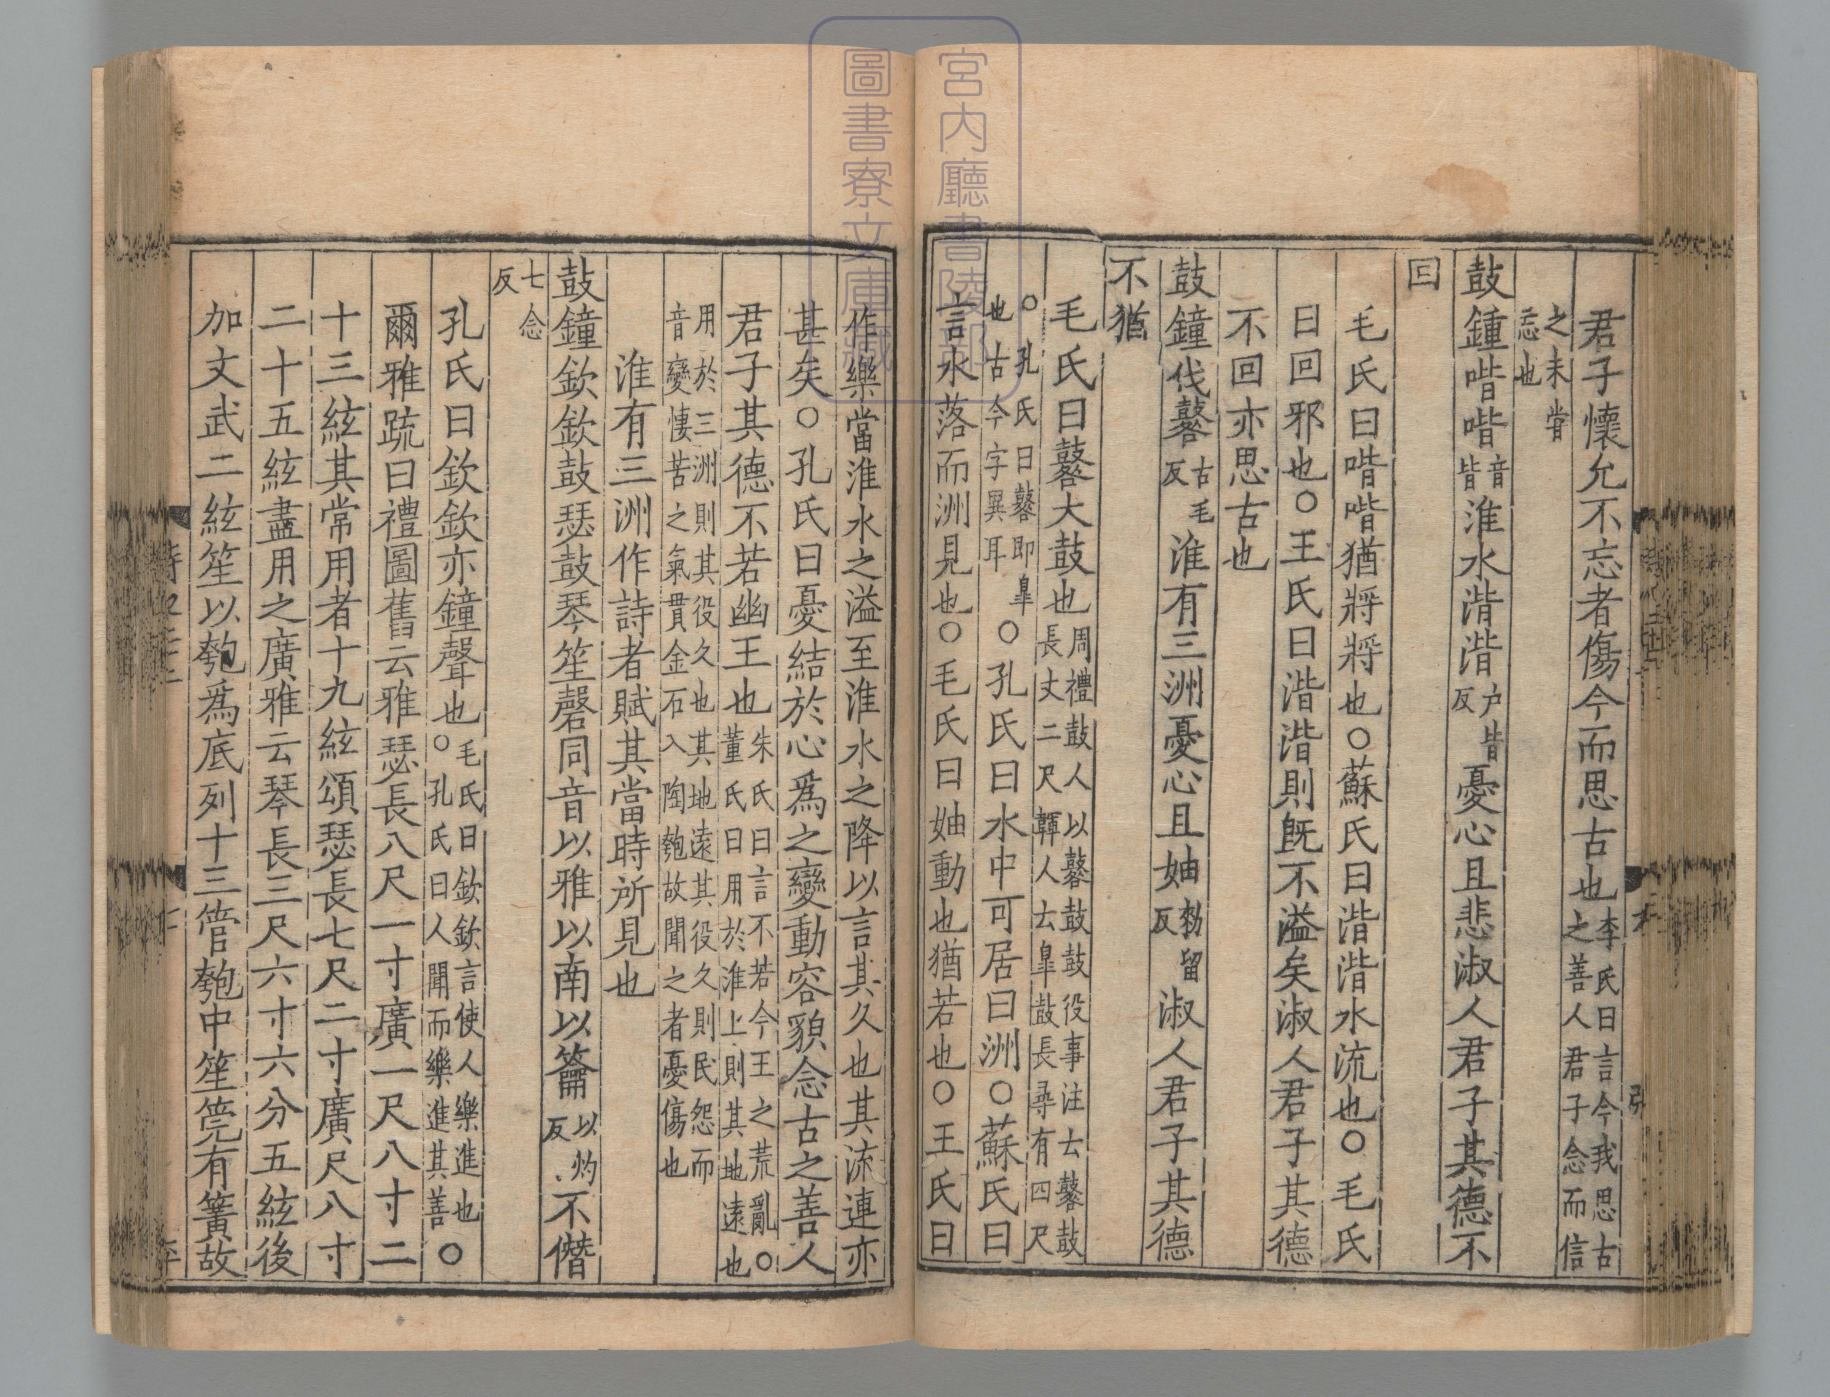 君子懷允不忘者傷今而思古也李氏曰言今我思古之善人君子念而信
之未嘗忘也
鼓鍾喈喈音皆淮水湝湝户皆反憂心且悲淑人君子其德不
回
毛氏曰喈喈猶將將也○蘇氏曰湝湝水流也○毛氏
曰回邪也○王氏曰湝湝則既不溢矣淑人君子其德
不回亦思古也
鼓鐘伐鼛古毛反淮有三洲憂心且妯勑留反淑人君子其德
不猶
毛氏曰鼛大鼓也周禮鼓人以鼛鼓鼓役事注云鼛鼓長丈二尺韗人云臯鼓長尋有四尺
○孔氏曰鼛即臯也古今字異耳○孔氏曰水中可居曰洲○蘇氏曰
言水落而洲見也○毛氏曰妯動也猶若也○王氏曰
作樂當淮水之溢至淮水之降以言其久也其流連亦
甚矣○孔氏曰憂結於心爲之變動容貌念古之善人
君子其德不若幽王也朱氏曰言不若今王之荒亂○董氏曰用於淮上則其地遠也
用於三洲則其役久也其地遠其役久則民怨而音變悽苦之氣貫金石入陶匏故聞之者憂傷也
淮有三洲作詩者賦其當時所見也
鼓鐘欽欽鼓瑟鼓琴笙磬同音以雅以南以籥以灼反不僭
七念反
孔氏曰欽欽亦鐘聲也毛氏曰欽欽言使人樂進也○孔氏曰人聞而樂進其善○
爾雅疏曰禮圖舊云雅瑟長八尺一寸廣一尺八寸二
十三絃其常用者十九絃頌瑟長七尺二寸廣尺八寸
二十五絃盡用之廣雅云琴長三尺六寸六分五絃後
加文武二絃笙以匏爲底列十三管匏中笙筦有簧故
宮内廳書陵部
圖書寮文庫藏